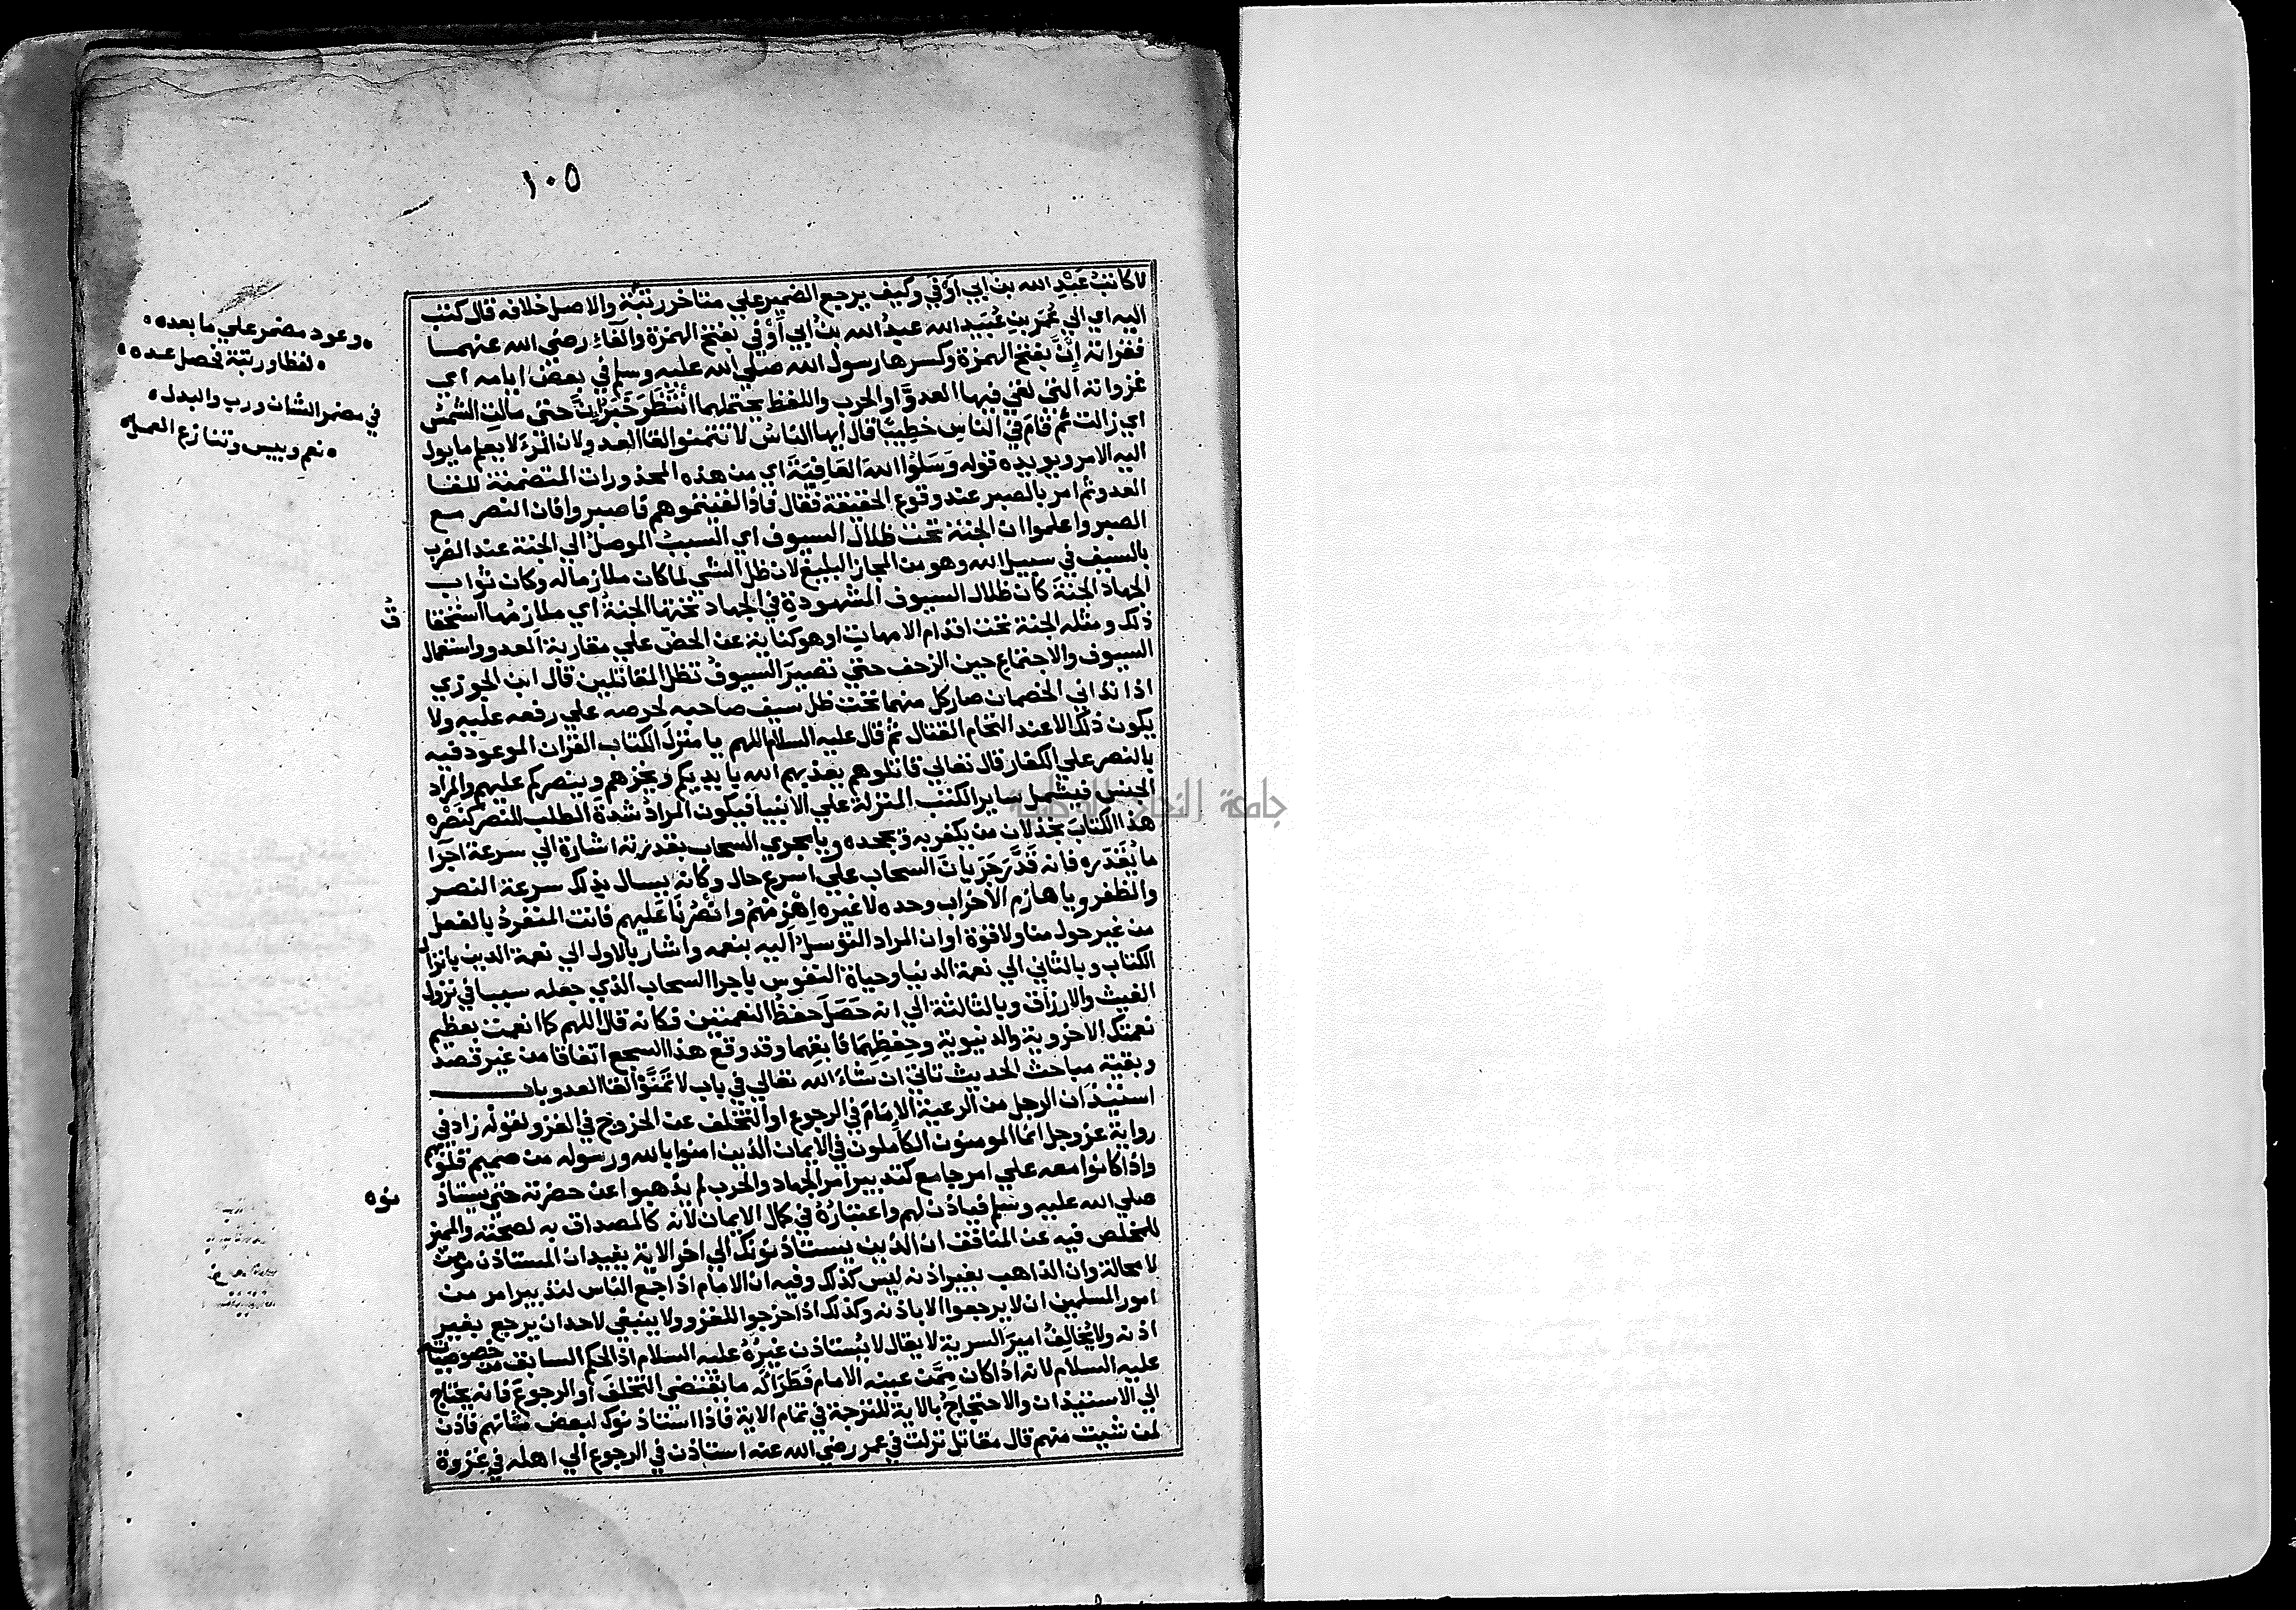 ١٠٥
لا كاتب عَبْدِ الله بن ابي اَوْفَي وكيف يرجع الضمير علي متاخر رتبة والاصل خلافه قال كتب
اليه اي الي عُمَر بنِ عُبَيد الله عبدُ الله بنُ ابي اَوْفي بفتح الهمزة والفاءِ رضي الله عنهما
فقراته اِنَّ بفتح الهمزة وكسرها رسول الله صلي الله عليه وسلم في بعض ايامه اي
غزواته التي لقي فيها العدوَّ او الحرب واللفظ يحتملهما انْتَظَرَ حتي مالت الشمس
اي زالت ثم قامَ في الناسِ خطِيبًا قال ايها الناسُ لا تتمنوا لقا العدو لان المرَ لا يعلم ما يول
اليه الامر ويويده قوله وَسَلُوا اللهَ العَافِيَةَ اي من هذه المحذورات المتضمنة للقا
العدو ثم امر بالصبر عند وقوع الحقيقة فقال فاذا لقيتموهم فاصبروا فان النصر مع
الصبر واعلموا ان الجنة تحت ظلال السيوف اي السبب الموصل الي الجنة عند الضرب
بالسيف في سبيل الله وهو من المجاز البليغ لان ظل الشي لما كان ملازما له وكان ثواب
الجهاد الجنةَ كان ظلال السيوف المشهودةِ في الجهاد تحتها الجنةُ اي ملازمُها استحقا
ذلك ومثله الجنة تحت اقدام الامهات او هو كناية عن الحض علي مقاربة العدو واستعمال
السيوف والاجتماع حين الزحف حتي تصيرَ السيوفُ تظل المقاتلين قال ابن الجوزي
اذا تداني الخصمان صار كل منهما تحت ظل سيف صاحبه لحرصه علي رفعه عليه ولا
يكون ذلك الا عند التحام القتال ثم قال عليه السلام اللهم يا منزلَ الكتاب القران الموعود فيه
بالنصر علي الكفار قال تعالي قاتلوهم يعذبهم الله بايديكم ويخزهم وينصركم عليهم والمراد
الجنس فيشمل ساير الكتب المنزلة علي الانبيا فيكون المرادُ شدةَ الطلب للنصر كنَصْرِه
هذا الكتابَ بخذلان من يكفر به ويجحده ويا مجري السحاب بقدرته اشارة الي سرعة اجرا
ما يُقَدّره فانه قَدَّرَ جَرَيانَ السحاب علي اسرع حال وكانه يسال بذلك سرعة النصر
والظفر ويا هازم الاحزاب وحده لا غيره اِهْزمْهُم وانْصُرنَا عَليهم فانت المنفرد بالفعل
من غير حول منا ولا قوة او ان المراد التوسل اليه بنعمه واشار بالاول الي نعمة الدين بانزال
الكتاب وبالثاني الي نعمة الدنيا وحياة النفوس باجرا السحاب الذي جعله سببا في نزول
الغيث والارزاق وبالثالثة الي انه حَصَلَ حفظُ النعمتين فكانه قال اللهم كما انعمت بعظيم
نعمتك الاخروية والدنيوية وحِفظِهِمَا فابقهما وقد وقع هذا السجع اتفاقا من غير قصد
وبقية مباحث الحديث تاتي ان شاءَ الله تعالي في باب لا تَمَنَّوْا لقا العدو باب
استيذان الرجل من الرعية الاِمَامَ في الرجوع او التخلف عن الخروج في الغزو لقوله زاد في
رواية عز وجل انما المومنون الكاملون في الايمان الذين امنوا بالله ورسوله من صميم قلوبهم
واذا كانوا معه علي امر جامع كتدبير امر الجهاد والحرب لم يذهبوا عن حضرته حتي يستاذ
نوه
صلي الله عليه وسلم فياذن لهم واعتبارُهُ في كمال الايمان لانه كالمصداق به لصحته والمميز
للمخلص فيه عن المنافق ان الذين يستاذنونك الي اخر الاية يفيد ان المستاذن مومن
لا محالة وان الذاهب بغير اذنه ليس كذلك وفيه ان الامام اذا جمع الناس لتدبير امر من
امور المسلمين ان لا يرجعوا الا باذنه وكذلك اذا خرجوا للغزو ولا ينبغي لاحد ان يرجع بغير
اذنه ولا يُخالِفُ اميرَ السرية لا يقال لا يُستاذن غيرُهُ عليه السلام اذ الحكم السابق من خصوصياته
عليه السلام لانه اذا كان مِمَّن عينه الامام فَطَرَا لَه ما يقتضي التخلفَ او الرجوعَ فانه يحتاج
الي الاستيذان والاحتجاجُ بالاية للترجمة في تمام الاية فاذا استاذنوك لبعض شانهم فاذن
لمن شيت منهم قال مقاتل نزلت في عمر رضي الله عنه استاذن في الرجوع الي اهله في غزوة
وعود مضمر علي ما بعده
لفظا ورتبة تحصل عده
في مضمر الشان ورب والبدل
نعم وبيس وتنازع العمل
جامعة النجاح الوطنية